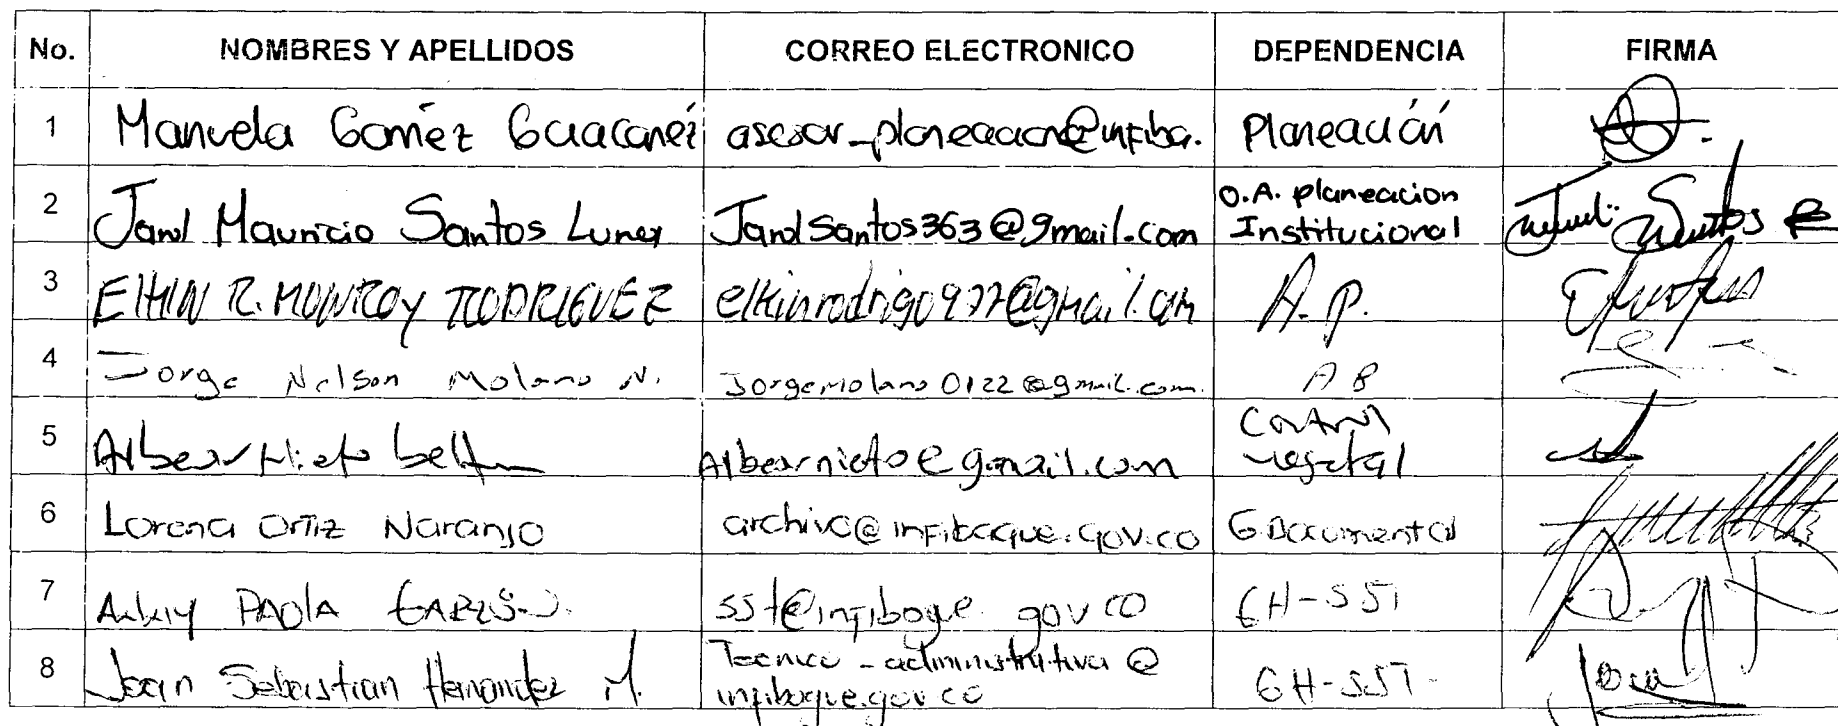 No. NOMBRES Y APELLIDOS CORREO ELECTRONICO DEPENDENCIA FIRMA
1 Manuela Gomez Guacanez asesor_planeacion@infiba. Planeación
2 Jarol Mauricio Santos Luna Jarolsantos363@gmail.com O.A. planeacion
Institucional
3 Elkin R. MONROY RODRIGUEZ elkinrodrigo977@gmail.com A.P.
4 Jorge Nelson Molano N. Jorgemolano0122@gmail.com. A B
5 Albear Nieto Albearnieto@gmail.com Control
vegetal
6 Lorena Ortiz Naranjo archivo@infibague.gov.co G Documental
7 PAOLA sst@infibague.gov co GH-SST
8 Joan Sebastian Hernandez M. Tecnico_administrativa@
infibague.gov co GH-SST-